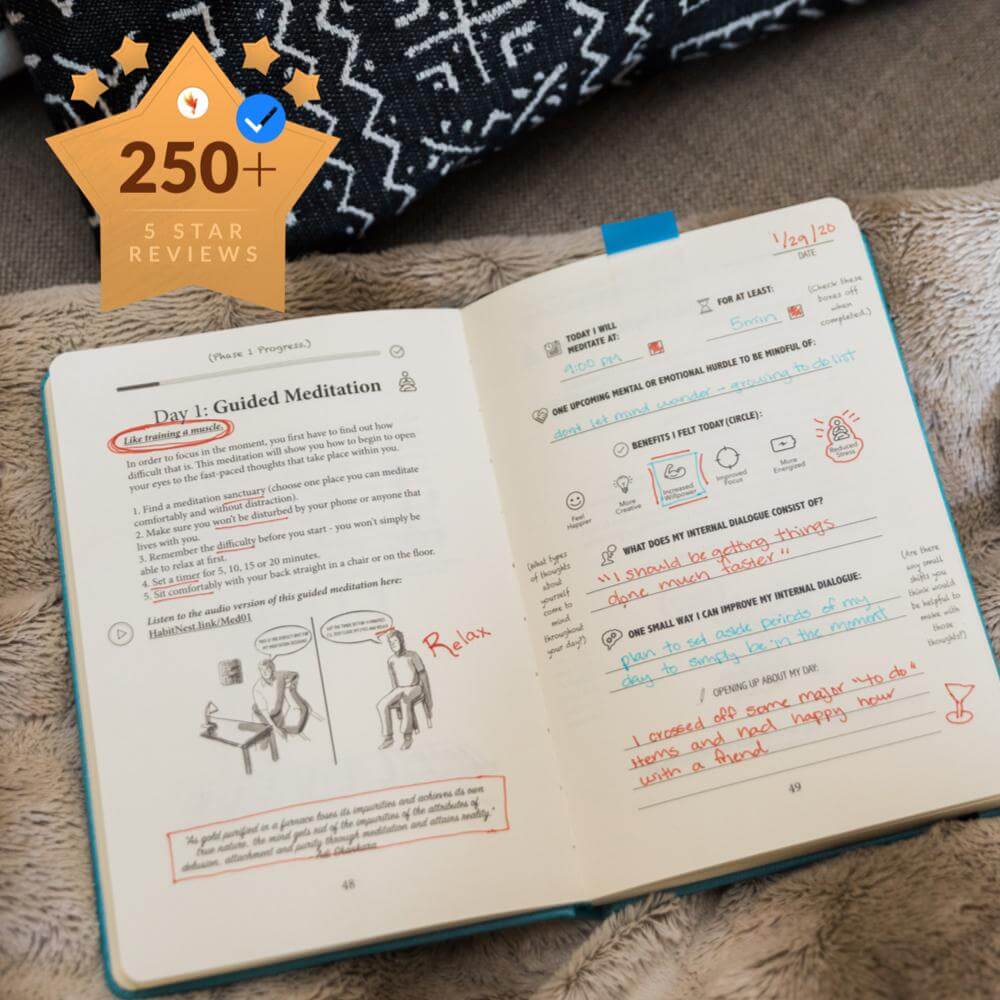 250+
5 STAR
REVIEWS
(Phase 1 Progress.)
Day 1: Guided Meditation
Like training a muscle.
In order to focus in the moment, you first have to find out how
difficult that is. This meditation will show you how to begin to open
your eyes to the fast-paced thoughts that take place within you.
1. Find a meditation sanctuary (choose one place you can meditate
comfortably and without distraction).
2. Make sure you won't be disturbed by your phone or anyone that
lives with you.
3. Remember the difficulty before you start - you won't simply be
able to relax at first.
4. Set a timer for 5, 10, 15 or 20 minutes.
5. Sit comfortably with your back straight in a chair or on the floor.
Listen to the audio version of this guided meditation here:
HabitNest.link/Med01
Relax
"As gold purified in a furnace loses its impurities and achieves its own
true nature, the mind gets rid of the impurities of the attributes of
delusion, attachment and purity through meditation and attains reality."
48
1/29/20
DATE
TODAY I WILL
MEDITATE AT:
9:00 pm
FOR AT LEAST:
5min
(Check these
boxes off
when
completed.)
ONE UPCOMING MENTAL OR EMOTIONAL HURDLE TO BE MINDFUL OF:
dont let mind wander - growing to do list
BENEFITS I FELT TODAY (CIRCLE):
Feel
Happier
More
Creative
Increased
Willpower
Improved
Focus
More
Energized
Reduced
Stress
WHAT DOES MY INTERNAL DIALOGUE CONSIST OF?
"I should be getting things
done much faster"
(What types
of thoughts
about
yourself
come to
mind
throughout
your day?)
ONE SMALL WAY I CAN IMPROVE MY INTERNAL DIALOGUE:
plan to set aside periods of my
day to simply be in the moment
(Are there
any small
shifts you
think would
be helpful to
make with
those
thoughts?)
OPENING UP ABOUT MY DAY:
I crossed off some major "to do"
items and had happy hour
with a friend
49